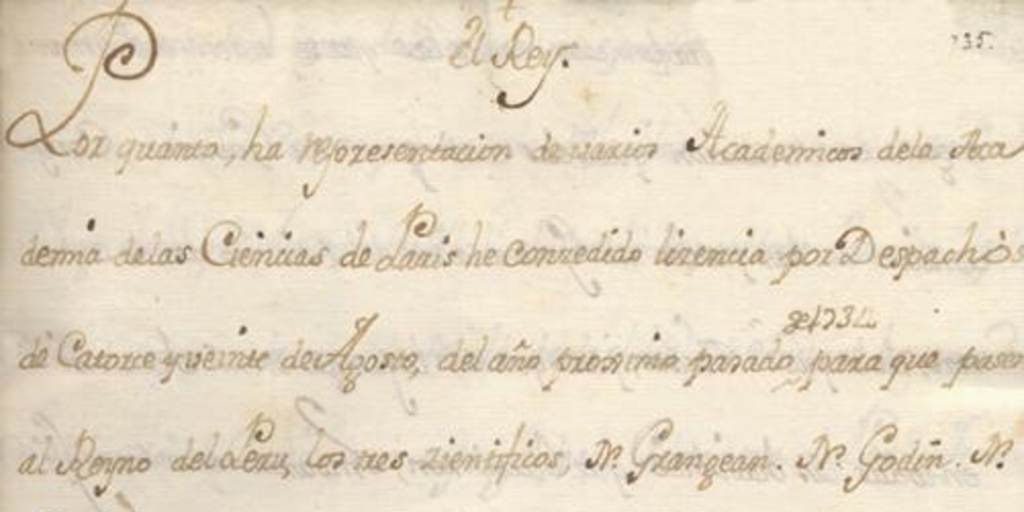 El Rey.
735.
Por quanto, ha representacion de varios Academicos dela Aca
demia de las Ciencias de Paris he conzedido lizencia por Despachos
de 1734
de Catorce y veinte de Agosto, del año proximo pasado para que pasen
al Reyno del Peru, los tres zientificos, Nr. Grangean. Nr. Godin. Nr.